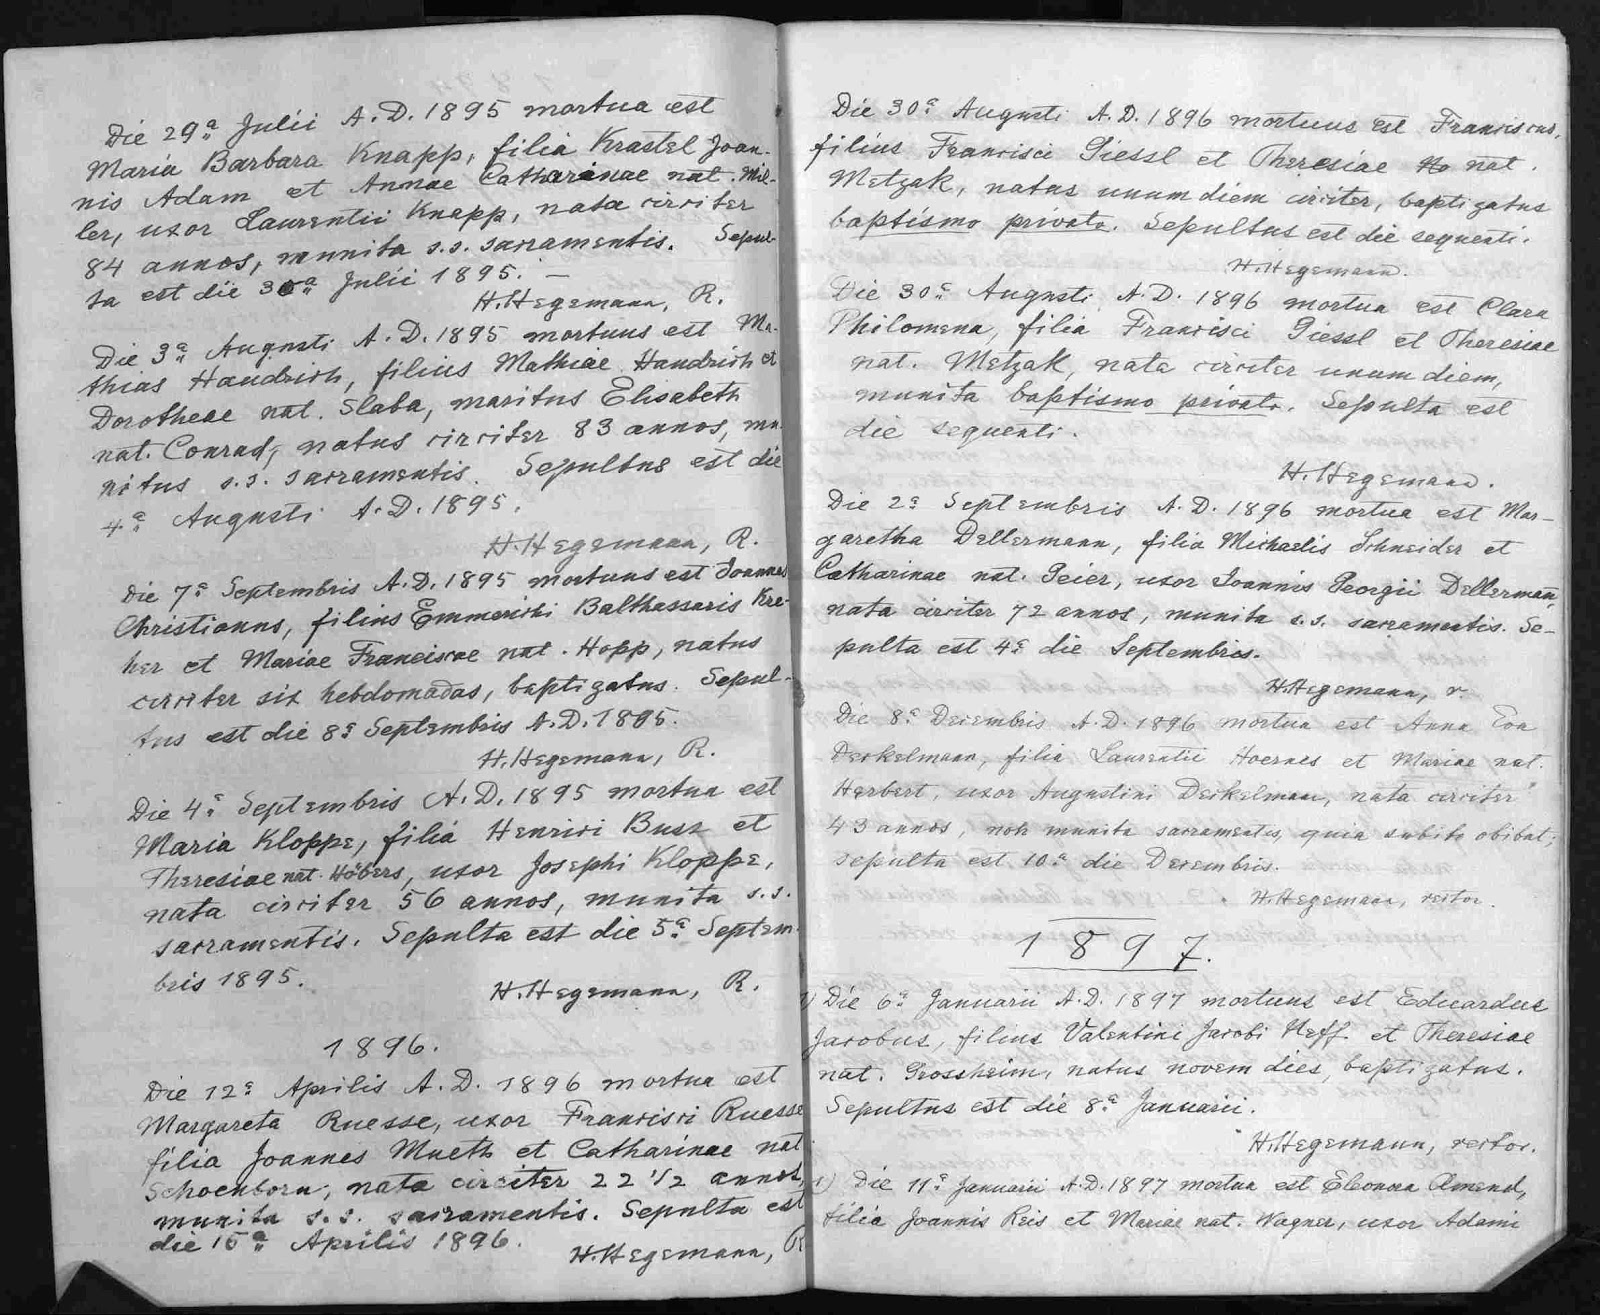 Die 29ª Julii A.D. 1895 mortua est
Maria Barbara Knapp, filia Krastel Joan-
nis Adam et Annae Catharinae nat. Mil-
ler, uxor Laurentii Knapp, nata circiter
84 annos, munita s.s. sacramentis. Sepul-
ta est die 30ª Julii 1895. —
H. Hegemann, R.
Die 3ª Augusti A.D. 1895 mortuus est Ma-
thias Handrich, filius Mathiae Handrich et
Dorotheae nat. Slaba, maritus Elisabeth
nat. Conrad, natus circiter 83 annos, mu-
nitus s.s. sacramentis. Sepultus est die
4.ª Augusti A.D. 1895.
H. Hegemann, R.
Die 7ª Septembris A.D. 1895 mortuus est Joannes
Christianus, filius Emmerichi Balthassaris Kre-
her et Mariae Franciscae nat. Hopp, natus
circiter six hebdomadas, baptizatus. Sepul-
tus est die 8ª Septembris A.D. 1895.
H. Hegemann, R.
Die 4ª Septembris A.D. 1895 mortua est
Maria Kloppe, filia Henrici Busz et
Theresiae nat. Höbers, uxor Josephi Kloppe,
nata circiter 56 annos, munita s.s.
sacramentis. Sepulta est die 5ª Septem-
bris 1895.
H. Hegemann, R.
1896.
Die 12ª Aprilis A.D. 1896 mortua est
Margareta Ruesse, uxor Francisci Ruesse
filia Joannes Mueth et Catharinae nat
Schoenborn, nata circiter 22 1/2 annos,
munita s.s. sacramentis. Sepulta est
die 15ª Aprilis 1896.
H. Hegemann, R
Die 30ª Augusti A.D. 1896 mortuus est Franciscus,
filius Francisci Giessl et Theresiae nat.
Metzak, natus unum diem circiter, baptizatus
baptismo privato. Sepultus est die sequenti.
H. Hegemann.
Die 30ª Augusti A.D. 1896 mortua est Clara
Philomena, filia Francisci Giessl et Theresiae
nat. Metzak, nata circiter unum diem,
munita baptismo privato. Sepulta est
die sequenti.
H. Hegemann.
Die 2ª Septembris A.D. 1896 mortua est Mar-
garetha Dellermann, filia Michaelis Schneider et
Catharinae nat. Geier, uxor Joannis Georgii Dellermann,
nata circiter 72 annos, munita s.s. sacramentis. Se-
pulta est 4ª die Septembris.
H. Hegemann, r.
Die 8ª Decembris A.D. 1896 mortua est Anna Eva
Deckelmann, filia Laurentii Hoernes et Mariae nat.
Herbert, uxor Augustini Deckelmann, nata circiter
43 annos, non munita sacramentis, quia subito obibat;
sepulta est 10ª die Decembris.
H. Hegemann, rector.
1897.
1) Die 6ª Januarii A.D. 1897 mortuus est Eduardus
Jacobus, filius Valentini Jacobi Neff et Theresiae
nat. Grossheim, natus novem dies, baptizatus.
Sepultus est die 8ª Januarii.
H. Hegemann, rector.
1) Die 11ª Januarii A.D. 1897 mortua est Eleonora Amend,
filia Joannis Reis et Mariae nat. Wagner, uxor Adami